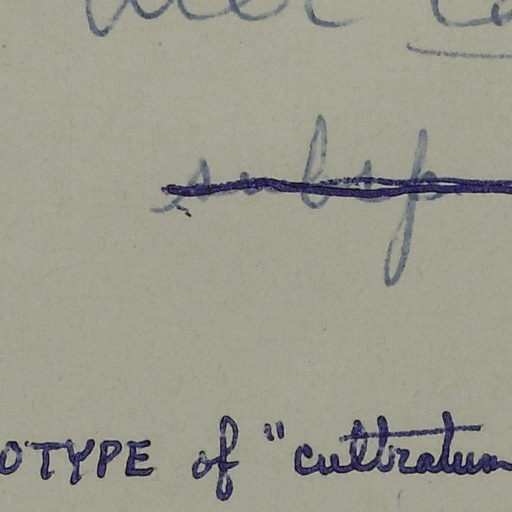 subsp
OTYPE of "cultratum